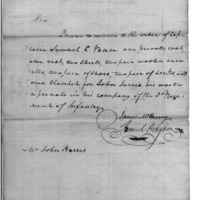 Sir
Please to deliver to the order of Capt
Samuel C. Vance one private's coat,
one vest, two shirts, two pair woolen over
alls, two pair of shoes, two pair of socks and
one blanket for John James, his waiter
a private in his company of the 3d Regi
ment of Infantry.
Samuel Hodgdon
Mr John Harris